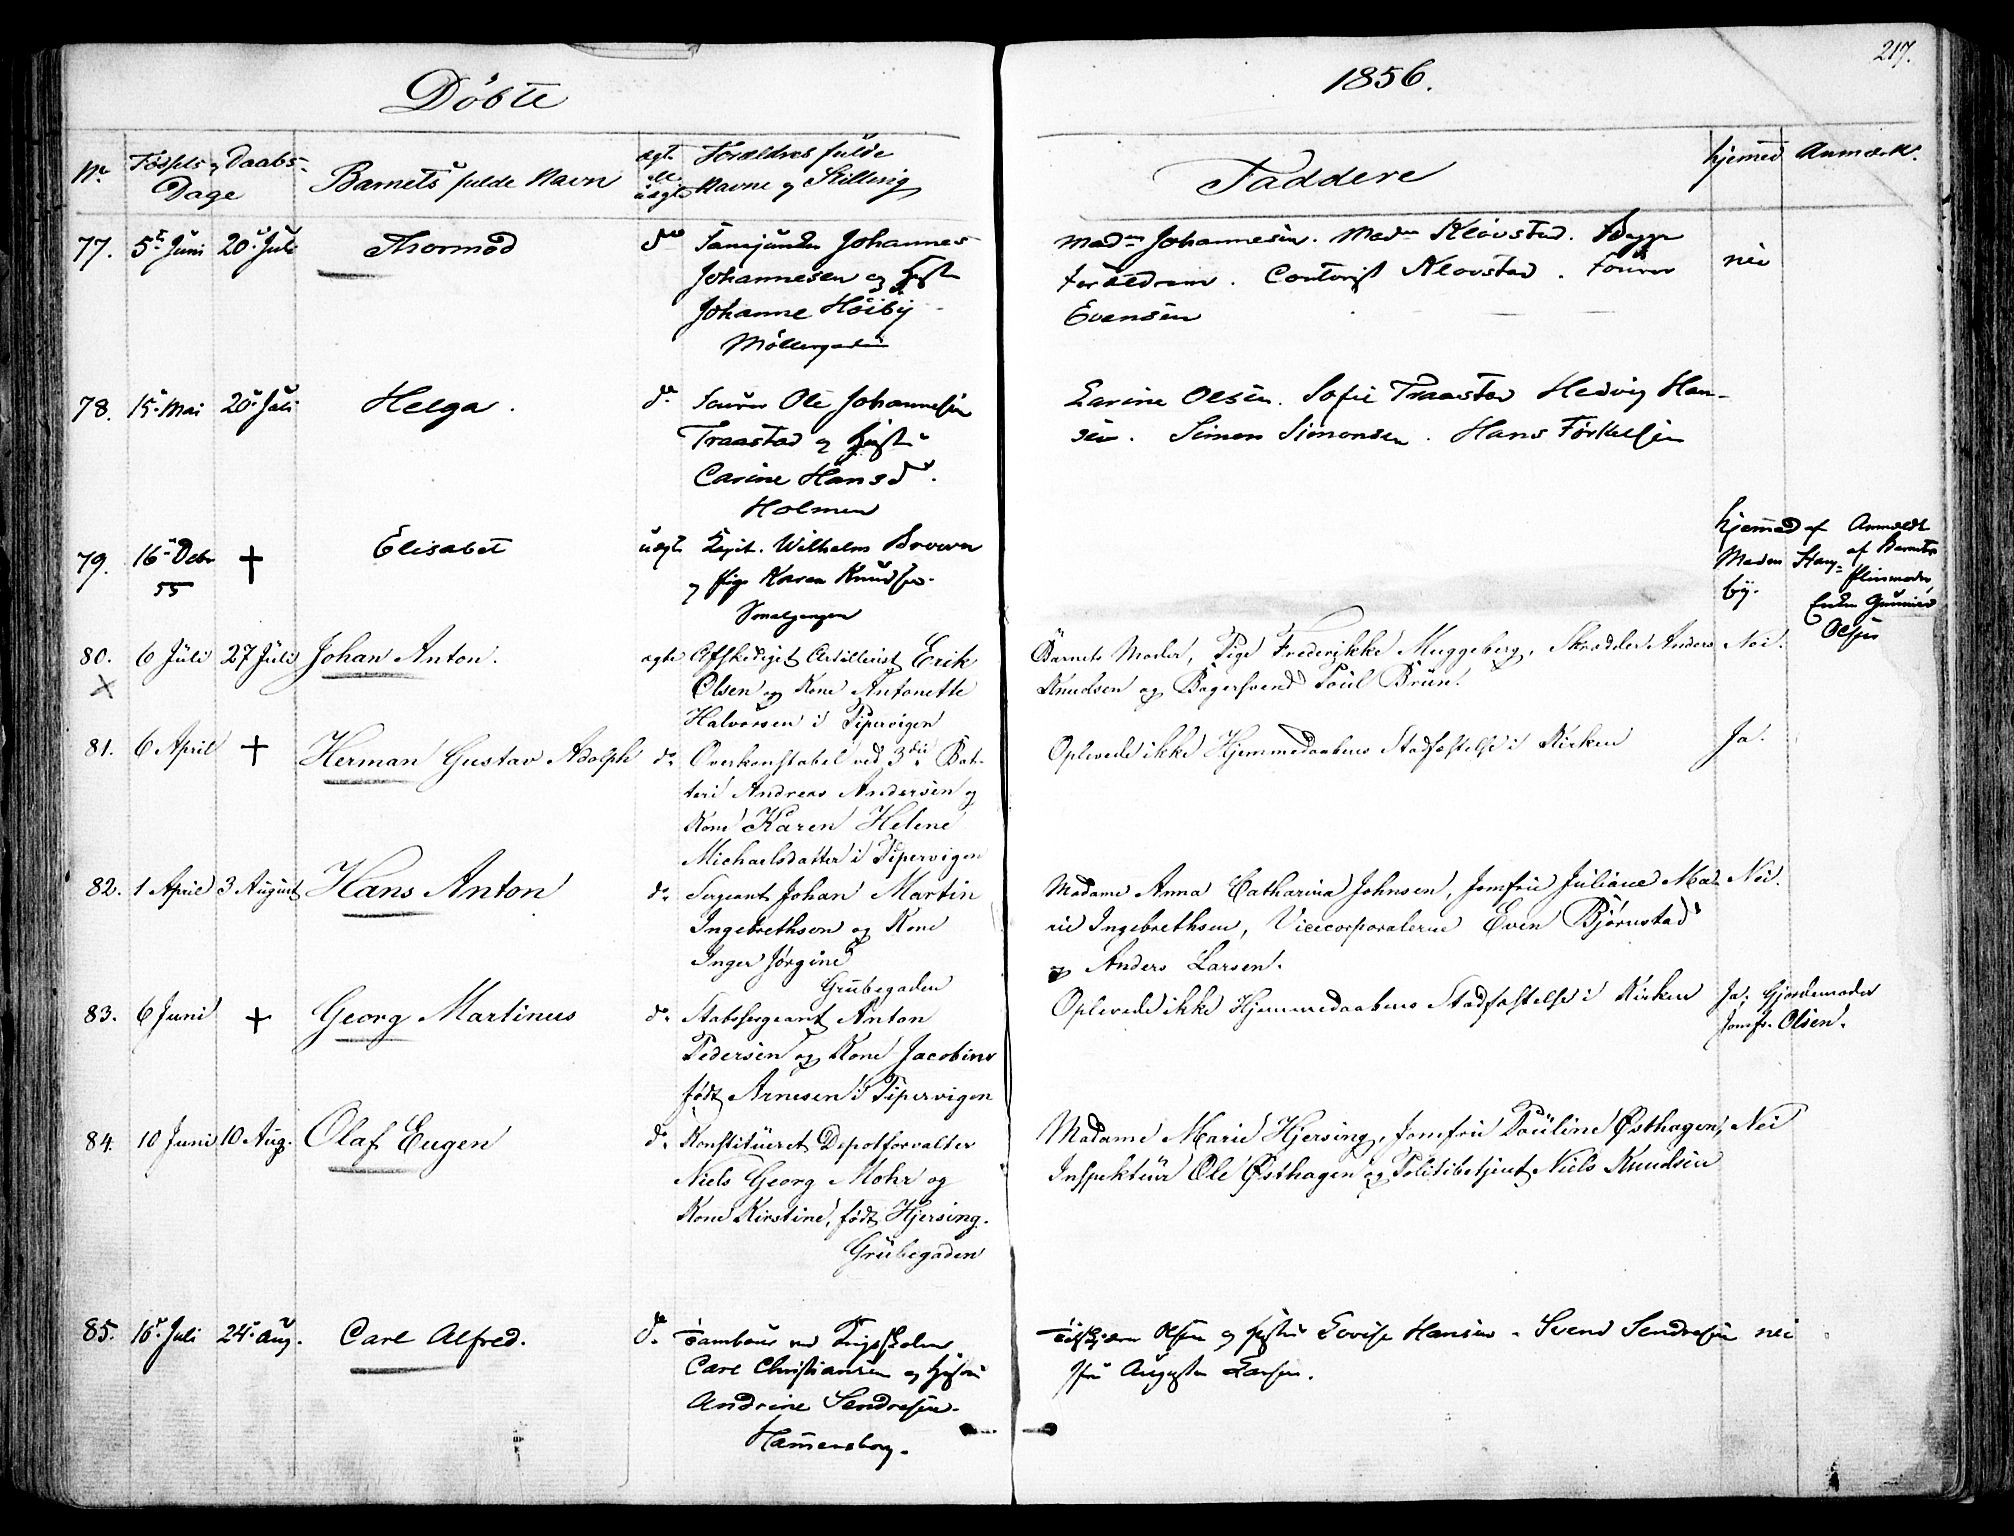 217.
Döbte
1856.
No Födsels og Daabs-
Dage
Barnets fulde Navn
ægte
ell.
uægte
Forældres fulde
Navne og Stilling
Faddere
hjemmed
Anmærk.
77. 5t Juni 20 Juli Thormod do Johannes
Johannesen og Hust
Johanne Höiby
Möllergaden
Madm Johannesen. Madm Klövstad. Begge
Forældrene. Contorist Klovstad.
Evensen
nei
78. 15 Mai 20 Juli Helga. do Ole Johannesen
Traastad og Hust
Carine Hansdr.
Holmen
Karine Olsen. Sofie Traastad Hedvig Han-
sen. Simen Simonsen. Hans Torkelsen
79. 16 Debr
55
+ Elisabet uægte Wilhelm
og Pige Karen Knudsd.
Smalgangen
hjemmed af
Madm Haug-
by.
Anmeldt
af Barnets
Pleiemoder
Enke
Olsen
80. 6 Juli 27 Juli Johan Anton. ægte Afskediget Artillerist Erik
Olsen og Kone Antonette
Halvorsen i Pipervigen
Barnets Moder, Pige Frederikke Muggeberg, Skrædder Anders
Knudsen og Bagersvend Poul Brün.
Nei.
81. 6 April + Herman Gustav Adolph do Overkonstabel ved 3die Bat-
teri Andreas Andersen og
Kone Karen Helene
Michaelsdatter i Pipervigen
Oplevede ikke Hjemmedaabens Stadfæstelse i Kirken
Ja.
82. 1 April 3 August Hans Anton do Sergeant Johan Martin
Ingebrethsen og Kone
Inger Jørgine
Grubegaden
Madame Anna Catharina Johnsen, Jomfru Juliane Ma-
rie Ingebrethsen, Vicecorporalerne Even Bjørnstad
og Anders Larsen.
Nei.
83. 6 Juni + Georg Martinus do Stabssergeant Anton
Pedersen og Kone Jacobine
født Arnesen i Pipervigen
Oplevede ikke Hjemmedaabens Stadfæstelse i Kirken
Ja, Gjordemoder
Jomfr. Olsen.
84. 10 Juni 10 Aug. Olaf Eugen do Konstitueret Depotforvalter
Niels Georg Mohr og
Kone Kirstine, født Hjersing.
Grubegaden
Madame Marie Hjersing, Jomfru Pouline Østhagen,
Inspekteur Ole Østhagen og Politibetjent Niels Knudsen
Nei
85. 16 Juli 24 Aug. Carl Alfred. do Tambour ved Krigsskolen
Carl Christiansen og Hustru
Andrine Sendresen.
Hammersborg.
Olsen og Hustru Lovise Hansen. Svend Sendresen
Jfru Augusta Larsen.
nei